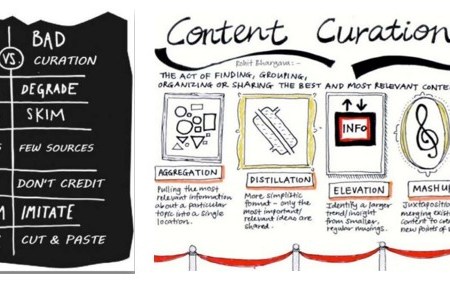 BAD
VS
CURATION
DEGRADE
SKIM
FEW SOURCES
DON'T CREDIT
IMITATE
CUT & PASTE
Content Curation
Rohit Bhargava:-
THE ACT OF FINDING, GROUPING,
ORGANIZING OR SHARING THE BEST AND MOST RELEVANT CONTE
INFO
AGGREGATION
Pulling the most
relevant information
about a particular
topic into a single
location.
DISTILLATION
More simplistic
format - only the
most important/
relevant ideas are
shared.
ELEVATION
Identify a larger
trend/insight
from smaller,
regular musings.
MASHUP
Juxtaposition
merging exist
content to crea
new points of v